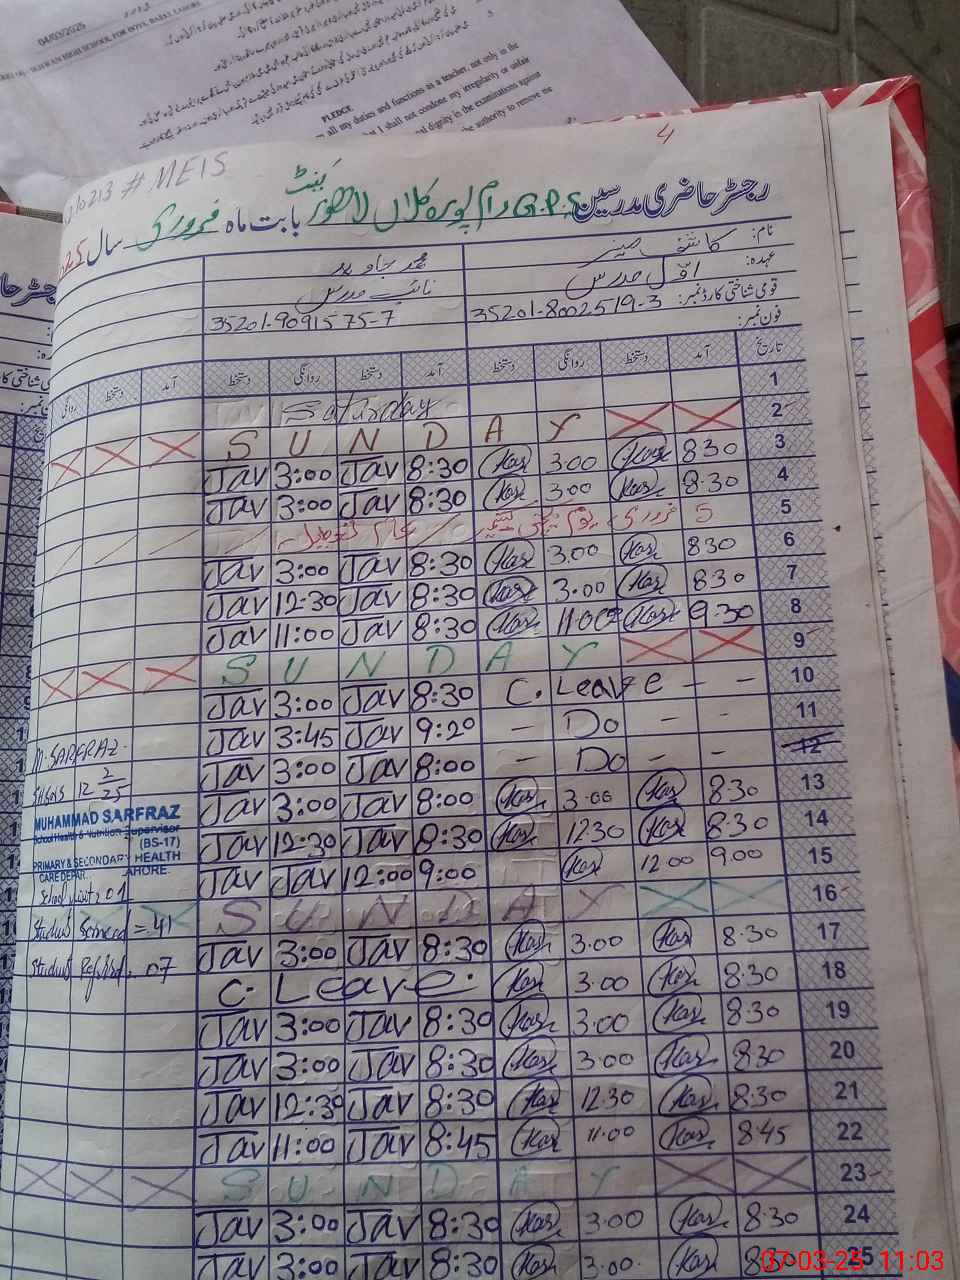 04/03/2025
PLEDGE
all my duties and functions as a teacher, not only in the
I shall not condone any irregularity or unfair
dignity in the examinations against
the authority to remove
4
0213 # MEIS
رجسٹر حاضری مدرسین G.P.S رام پورہ کلاں لاہور کینٹ بابت ماہ فروری سال
نام: کاشف منیر محمد جاوید
عہدہ: اوّل مدرس نائب مدرس
قومی شناختی کارڈ نمبر: 35201-8002519-3 35201-9091575-7
فون نمبر:
تاریخ آمد دستخط روانگی دستخط آمد دستخط روانگی دستخط آمد دستخط روانگی
1 Saturday
2 S U N D A Y
3 8:30 Kas 3:00 Kas 8:30 Jav 3:00 Jav
4 8:30 Kas 3:00 Kas 8:30 Jav 3:00 Jav
5 5 فروری یوم یکجہتی کشمیر عام تعطیل
6 8:30 Kas 3:00 Kas 8:30 Jav 3:00 Jav
7 8:30 Kas 3:00 Kas 8:30 Jav 12:30 Jav
8 9:30 Kas 11:00 Kas 8:30 Jav 11:00 Jav
9 S U N D A Y
10 C. Leave - - 8:30 Jav 3:00 Jav
11 - Do - - 9:20 Jav 3:45 Jav
12 - Do - - 8:00 Jav 3:00 Jav
13 8:30 Kas 3:00 Kas 8:00 Jav 3:00 Jav
14 8:30 Kas 12:30 Kas 8:30 Jav 12:30 Jav
15 9:00 12:00 Kas 9:00 12:00 Jav Jav
16 S U N D A Y
17 8:30 Kas 3:00 Kas 8:30 Jav 3:00 Jav
18 8:30 Kas 3:00 Kas C. Leave.
19 8:30 Kas 3:00 Kas 8:30 Jav 3:00 Jav
20 8:30 Kas 3:00 Kas 8:30 Jav 3:00 Jav
21 8:30 Kas 12:30 Kas 8:30 Jav 12:30 Jav
22 8:45 Kas 11:00 Kas 8:45 Jav 11:00 Jav
23 S U N D A Y
24 8:30 Kas 3:00 Kas 8:30 Jav 3:00 Jav
25 Kas 3:00 Kas 8:30 Jav 3:00 Jav
M. SARFRAZ.
SH&NS 12 2/25
MUHAMMAD SARFRAZ
School Health & Nutrition Supervisor
(BS-17)
PRIMARY & SECONDARY HEALTH
CARE DEPTT. LAHORE.
School visit, 01
Student Screened = 41
Student Reffered = 07
07-03-25 11:03